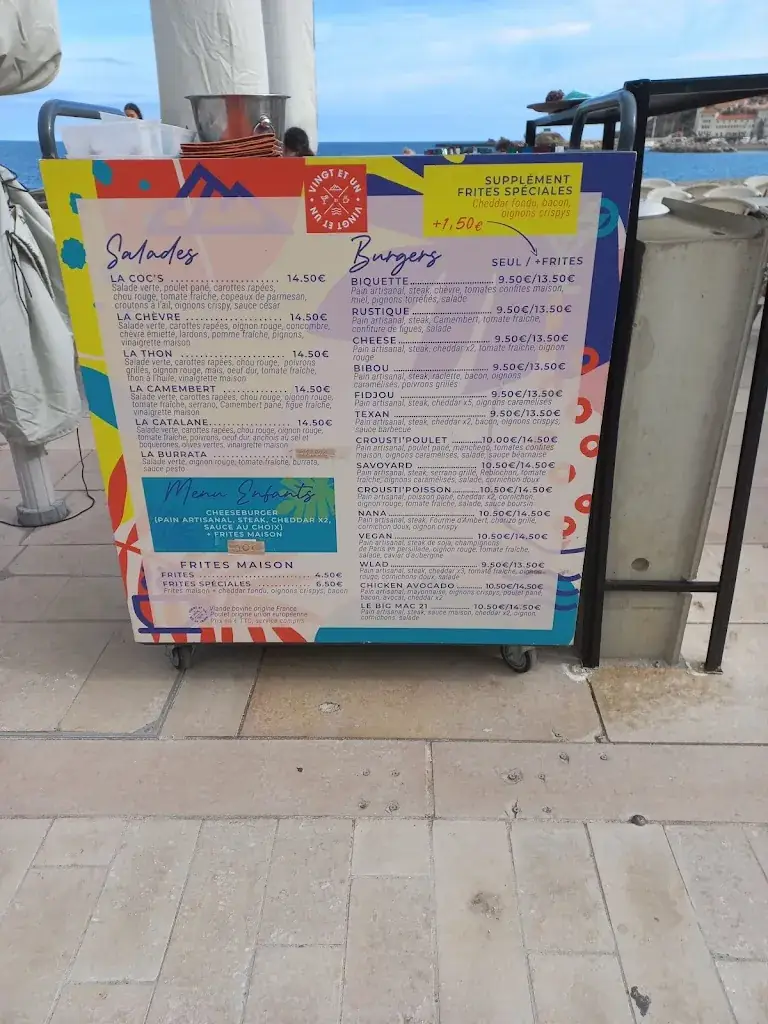 VINGT ET UN
VINGT ET UN
SUPPLÉMENT
FRITES SPÉCIALES
Cheddar fondu, bacon,
oignons crispys
+1,50€
Salades
LA COC'S 14.50€
Salade verte, poulet pané, carottes rapées,
chou rouge, tomate fraîche, copeaux de parmesan,
croutons à l'ail, oignons crispy, sauce césar
LA CHÈVRE 14.50€
Salade verte, carottes rapées, oignon rouge, concombre,
chèvre émietté, lardons, pomme fraîche, pignons,
vinaigrette maison
LA THON 14.50€
Salade verte, carottes rapées, chou rouge, poivrons
grillés, oignon rouge, maïs, oeuf dur, tomate fraîche,
thon à l'huile, vinaigrette maison
LA CAMEMBERT 14.50€
Salade verte, carottes rapées, chou rouge, oignon rouge,
tomate fraîche, serrano, Camembert pané, figue fraîche,
vinaigrette maison
LA CATALANE 14.50€
Salade verte, carottes rapées, chou rouge, oignon rouge,
tomate fraîche, poivrons, oeuf dur, anchois au sel et
boquerones, olives vertes, vinaigrette maison
LA BURRATA
Salade verte, oignon rouge, tomate fraîche, burrata,
sauce pesto
Menu Enfants
CHEESEBURGER
(PAIN ARTISANAL, STEAK, CHEDDAR X2,
SAUCE AU CHOIX)
+ FRITES MAISON
FRITES MAISON
FRITES 4.50€
FRITES SPÉCIALES 6.50€
Frites maison + cheddar fondu, oignons crispys, bacon
Viande bovine origine France
Poulet origine union européenne
Prix en € TTC, service compris
Burgers
SEUL / +FRITES
BIQUETTE 9.50€/13.50€
Pain artisanal, steak, chèvre, tomates confites maison,
miel, pignons torréfiés, salade
RUSTIQUE 9.50€/13.50€
Pain artisanal, steak, Camembert, tomate fraîche,
confiture de figues, salade
CHEESE 9.50€/13.50€
Pain artisanal, steak, cheddar x2, tomate fraîche, oignon
rouge
BIBOU 9.50€/13.50€
Pain artisanal, steak, raclette, bacon, oignons
caramélisés, poivrons grillés
FIDJOU 9.50€/13.50€
Pain artisanal, steak, cheddar x5, oignons caramélisés
TEXAN 9.50€/13.50€
Pain artisanal, steak, cheddar x2, bacon, oignons crispys,
sauce barbecue
CROUSTI'POULET 10.00€/14.50€
Pain artisanal, poulet pané, manchego, tomates confites
maison, oignons caramélisés, salade, sauce béarnaise
SAVOYARD 10.50€/14.50€
Pain artisanal, steak, serrano grillé, Reblochon, tomate
fraîche, oignons caramélisés, salade, cornichon doux
CROUSTI'POISSON 10.50€/14.50€
Pain artisanal, poisson pané, cheddar x2, cornichon,
oignon rouge, tomate fraîche, salade, sauce boursin
NANA 10.50€/14.50€
Pain artisanal, steak, Fourme d'Ambert, chorizo grillé,
cornichon doux, oignon crispy
VEGAN 10.50€/14.50€
Pain artisanal, steak de soja, champignons
de Paris en persillade, oignon rouge, tomate fraîche,
salade, caviar d'aubergine
WLAD 9.50€/13.50€
Pain artisanal, steak, cheddar x3, tomate fraîche, oignons
rouge, cornichons doux, salade
CHICKEN AVOCADO 10.50€/14.50€
Pain artisanal, mayonnaise, oignons crispys, poulet pané,
bacon, avocat, cheddar x2
LE BIG MAC 21 10.50€/14.50€
Pain artisanal, steak, sauce maison, cheddar x2, oignon,
cornichons, salade